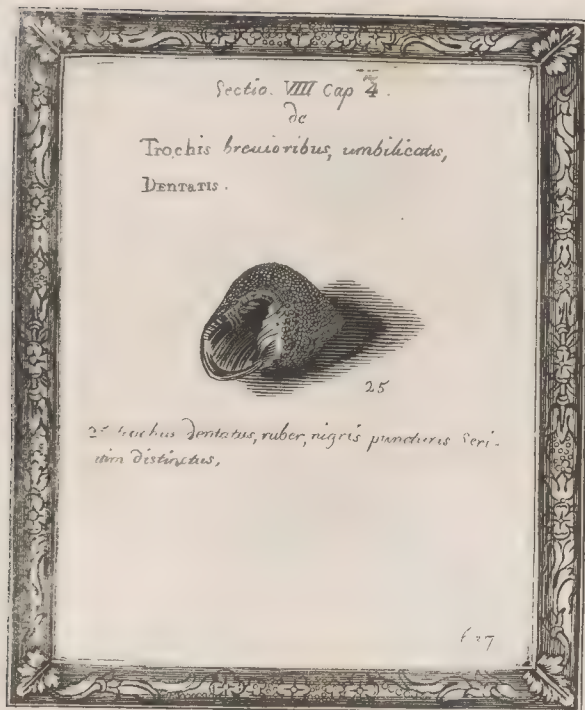 Sectio. VIIII Cap 4.
de
Trochis brevioribus, umbilicatis,
DENTATIS.
25
25 trochus dentatus, ruber, nigris puncturis seri-
atim distinctus,